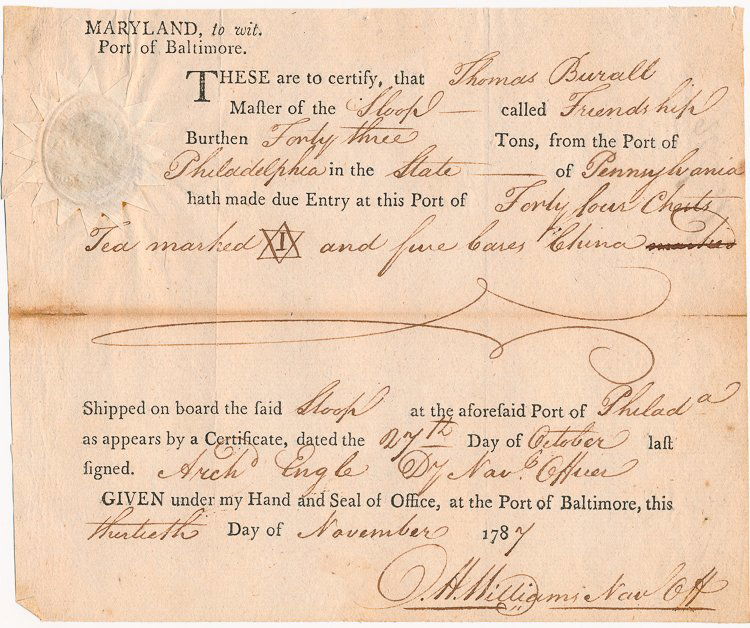 MARYLAND, to wit.
Port of Baltimore.
THESE are to certify, that Thomas Burall
Maſter of the Sloop called Friendship
Burthen Forty three Tons, from the Port of
Philadelphia in the State of Pennsylvania
hath made due Entry at this Port of Forty four Chests
Tea marked I and five Cases China marked
Shipped on board the ſaid Sloop at the aforeſaid Port of Philada
as appears by a Certificate, dated the 27th Day of October laſt
ſigned. Archd Engle Dy Navl Officer
GIVEN under my Hand and Seal of Office, at the Port of Baltimore, this
thirtieth Day of November 1787
O.H. Williams Nav Off